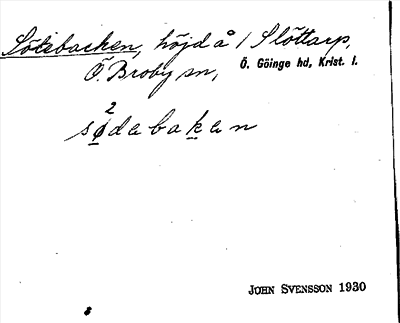 Sötebacken, höjd å 1 Slöttarp,
Ö. Broby sn, Ö. Göinge hd, Krist. l.
2
södabakan
JOHN SVENSSON 1930